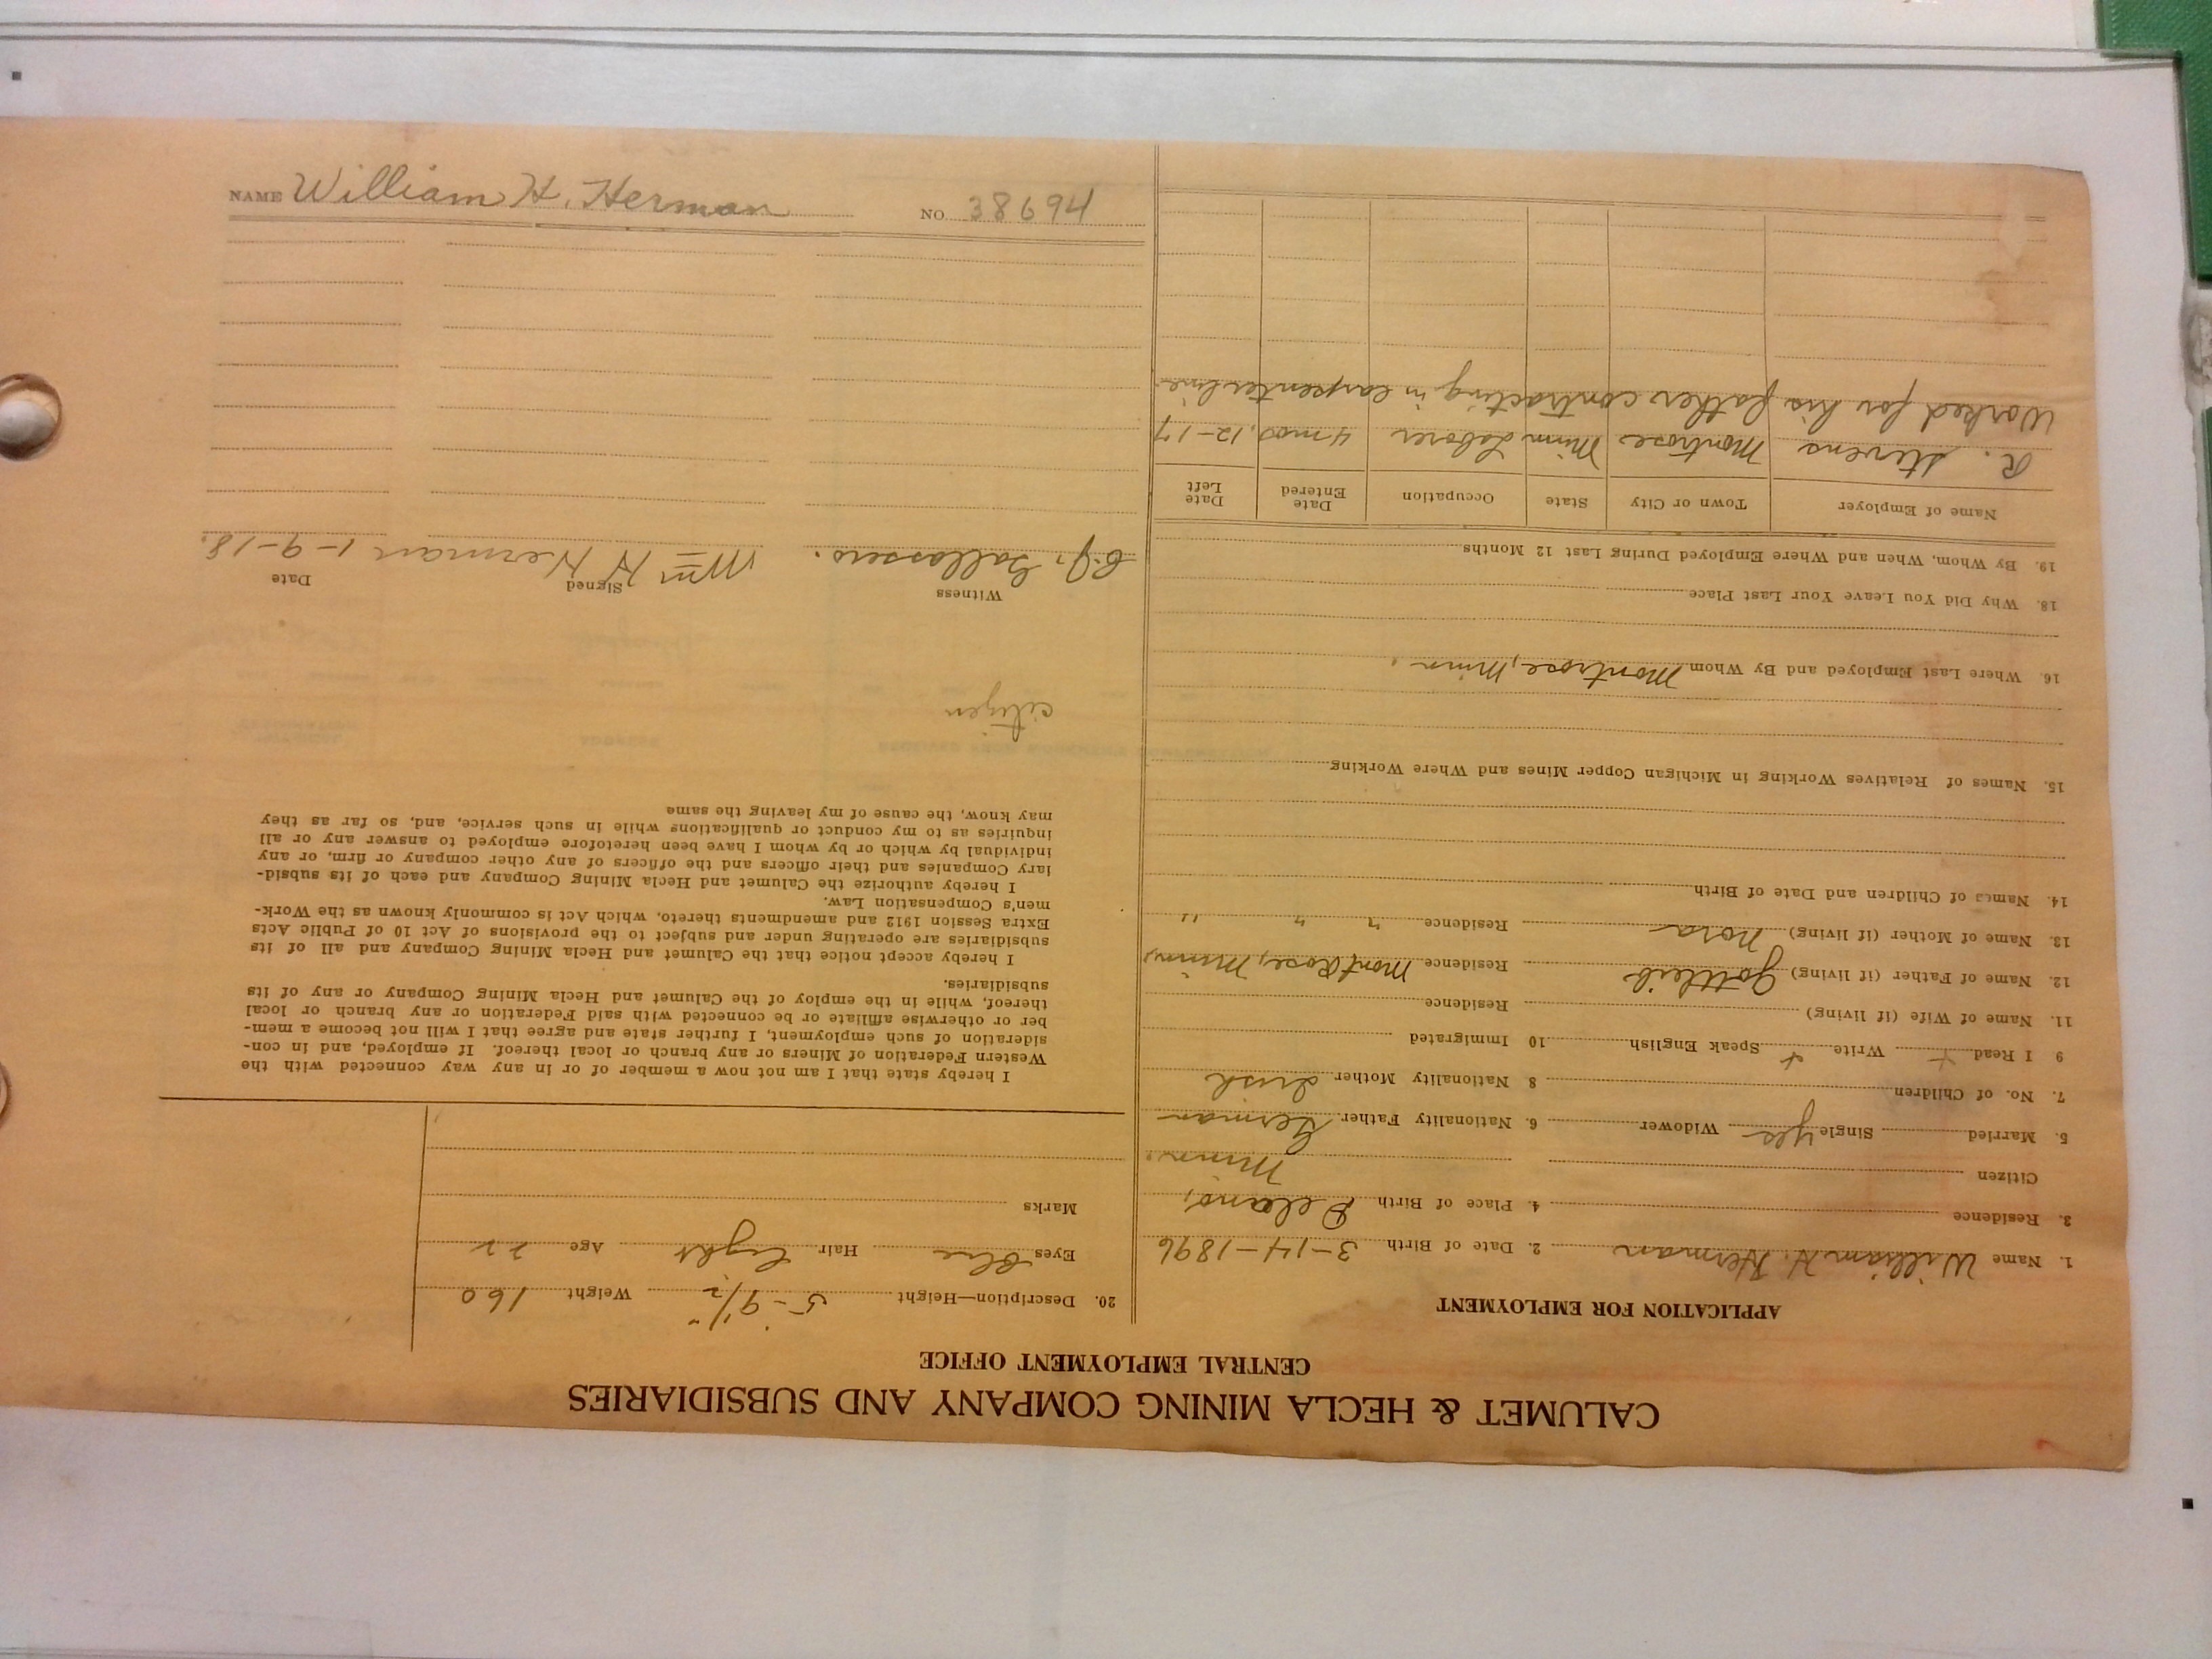 CALUMET & HECLA MINING COMPANY AND SUBSIDIARIES
CENTRAL EMPLOYMENT OFFICE
APPLICATION FOR EMPLOYMENT
1. Name William H. Herman 2. Date of Birth 3-14-1896
3. Residence 4. Place of Birth Delano,
Citizen Minn.
5. Married Single yes Widower 6. Nationality Father German
7. No. of Children 8 Nationality Mother Irish
9 I Read + Write + Speak English 10 Immigrated
11. Name of Wife (if living) Residence
12. Name of Father (if living) Gottleib Residence MontRose, Minn,
13. Name of Mother (if living) Nora Residence " " "
14. Names of Children and Date of Birth
15. Names of Relatives Working in Michigan Copper Mines and Where Working
16. Where Last Employed and By Whom Montrose, Minn.
18. Why Did You Leave Your Last Place
19. By Whom, When and Where Employed During Last 12 Months
Name of Employer Town or City State Occupation Date Entered Date Left
R. Stevens Montrose Minn Laborer 4 mos. 12-17
Worked for his father contracting in carpenter line
20. Description—Height 5-9½" Weight 160
Eyes Blue Hair Light Age 22
Marks
I hereby state that I am not now a member of or in any way connected with the
Western Federation of Miners or any branch or local thereof. If employed, and in con-
sideration of such employment, I further state and agree that I will not become a mem-
ber or otherwise affiliate or be connected with said Federation or any branch or local
thereof, while in the employ of the Calumet and Hecla Mining Company or any of its
subsidiaries.
I hereby accept notice that the Calumet and Hecla Mining Company and all of its
subsidiaries are operating under and subject to the provisions of Act 10 of Public Acts
Extra Session 1912 and amendments thereto, which Act is commonly known as the Work-
men's Compensation Law.
I hereby authorize the Calumet and Hecla Mining Company and each of its subsid-
iary Companies and their officers and the officers of any other company or firm, or any
individual by which or by whom I have been heretofore employed to answer any or all
inquiries as to my conduct or qualifications while in such service, and, so far as they
may know, the cause of my leaving the same
citizen
Witness Signed Date
Wm H Herman 1-9-18.
NAME William H. Herman NO 38694